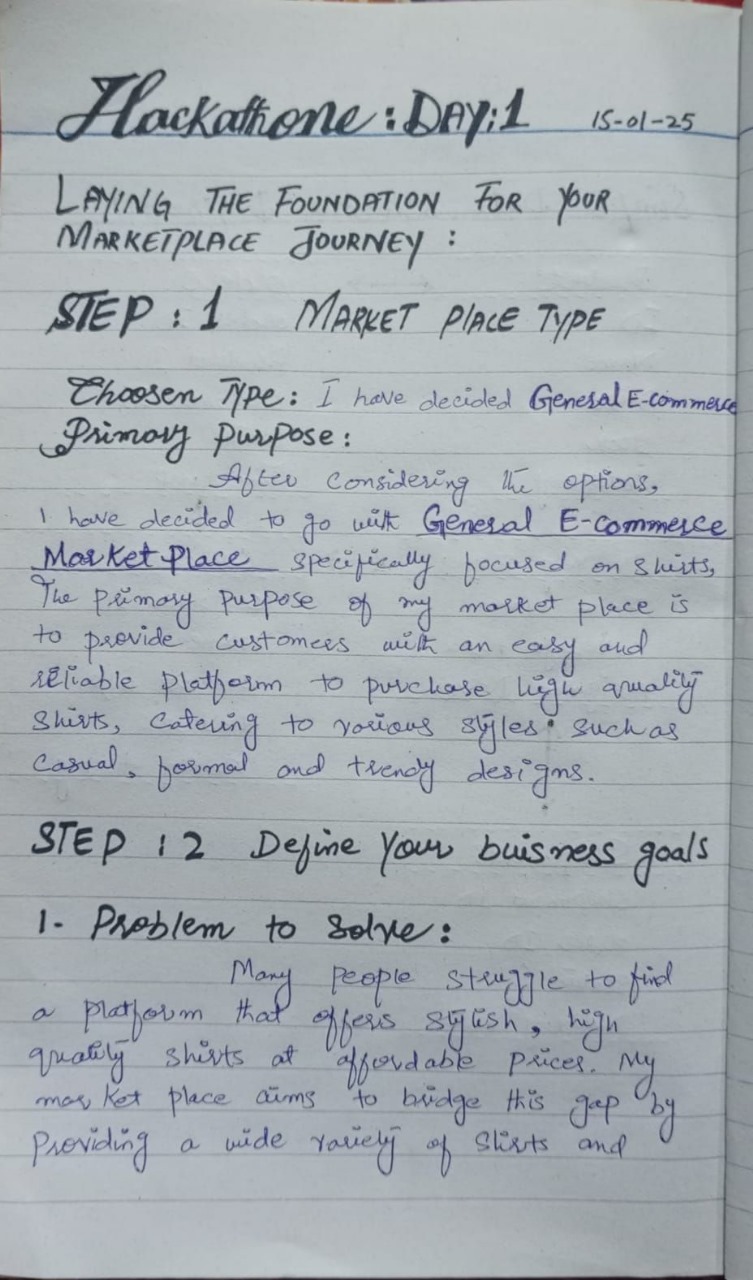 Hackathone: DAY:1 15-01-25
LAYING THE FOUNDATION FOR YOUR
MARKETPLACE JOURNEY :
STEP : 1 MARKET PLACE TYPE
Choosen Type: I have decided General E-commerce
Primary Purpose:
After considering the options,
I have decided to go with General E-commerce
Market Place specifically focused on shirts,
The primary purpose of my market place is
to provide customers with an easy and
reliable platform to purchase high quality
shirts, catering to various styles such as
casual, formal and trendy designs.
STEP : 2 Define Your buisness goals
1- Problem to solve:
Many people struggle to find
a platform that offers stylish, high
quality shirts at affordable prices. My
market place aims to bridge this gap by
providing a wide variety of shirts and